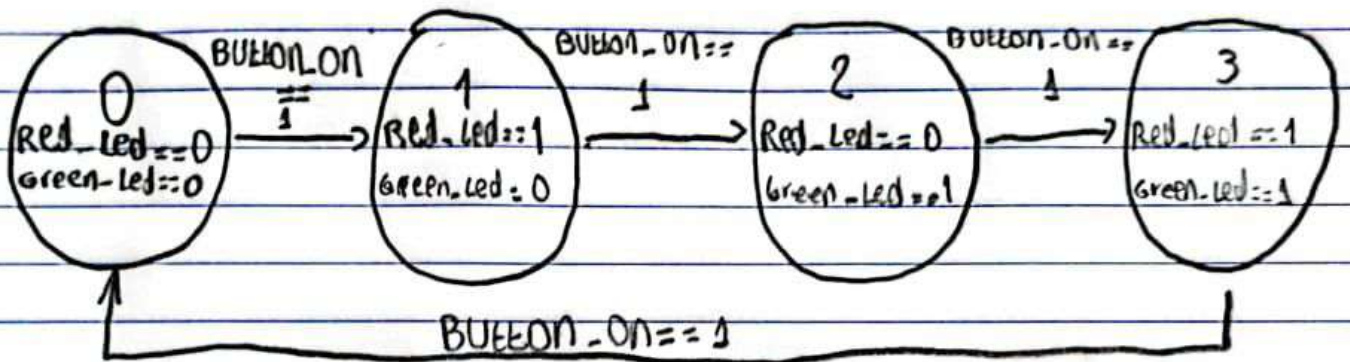 0
Red_Led==0
Green_Led==0
BUTTON_ON
==
1
1
Red_Led==1
Green_Led=0
BUTTON_ON==
1
2
Red_Led==0
Green_Led==1
BUTTON_ON==
1
3
Red_Led==1
Green_Led==1
BUTTON_ON==1